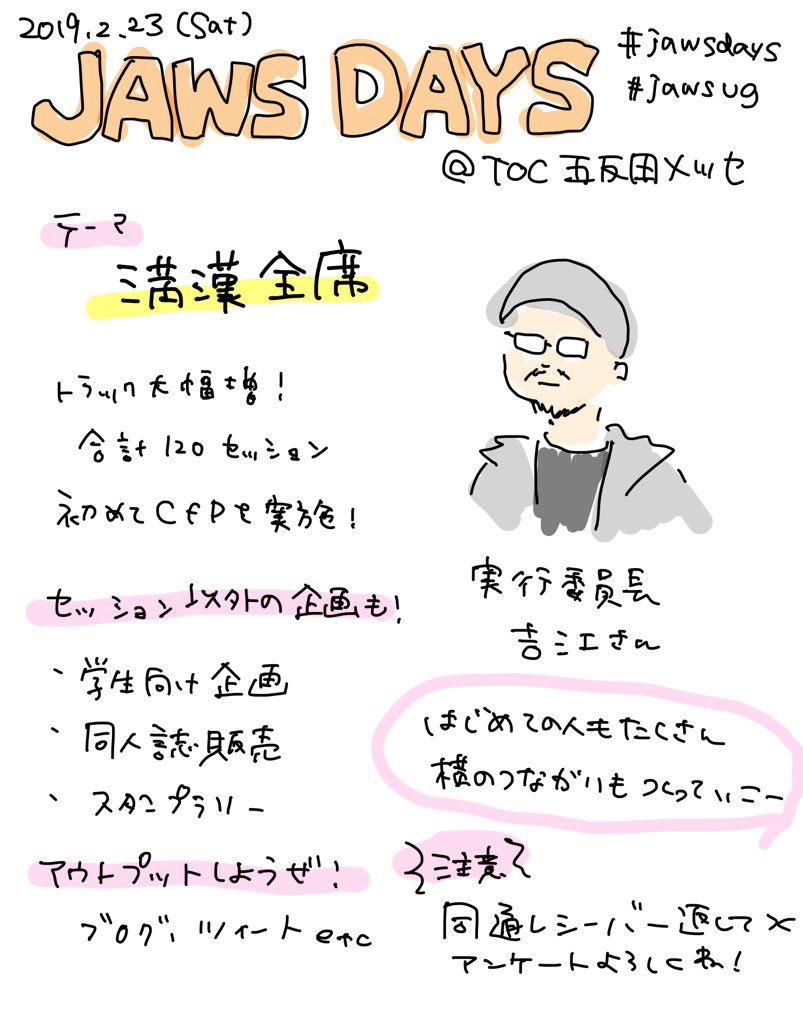 2019.2.23 (Sat)
JAWS DAYS
#jawsdays
#jawsug
@TOC 五反田メッセ
テーマ
満漢全席
トラック大幅増!
合計120セッション
初めてCfPを実施!
セッション以外の企画も!
・学生向け企画
・同人誌販売
・スタンプラリー
アウトプットしようぜ!
ブログ、ツイート etc
実行委員長
吉江さん
はじめての人もたくさん
横のつながりもつくっていこー
注意
同通レシーバー返してメ
アンケートよろしくね!